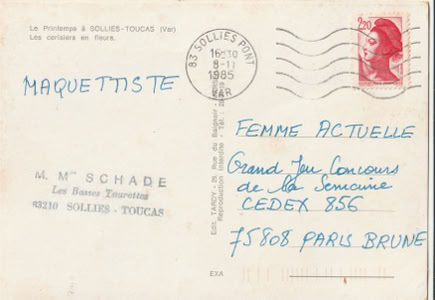 Le Printemps à SOLLIES-TOUCAS (Var)
Les cerisiers en fleurs.
MAQUETTISTE
83 SOLLIES PONT
16H30
8-11
1985
VAR
2,20
M. Mme SCHADE
Les Basses Tourettes
83210 SOLLIES - TOUCAS
Edit. TARDY - 28, Rue du
Reproduction Interdite - Tél. :
FEMME ACTUELLE
Grand Jeu Concours
de la Semaine
CEDEX 856
75808 PARIS BRUNE
EXA